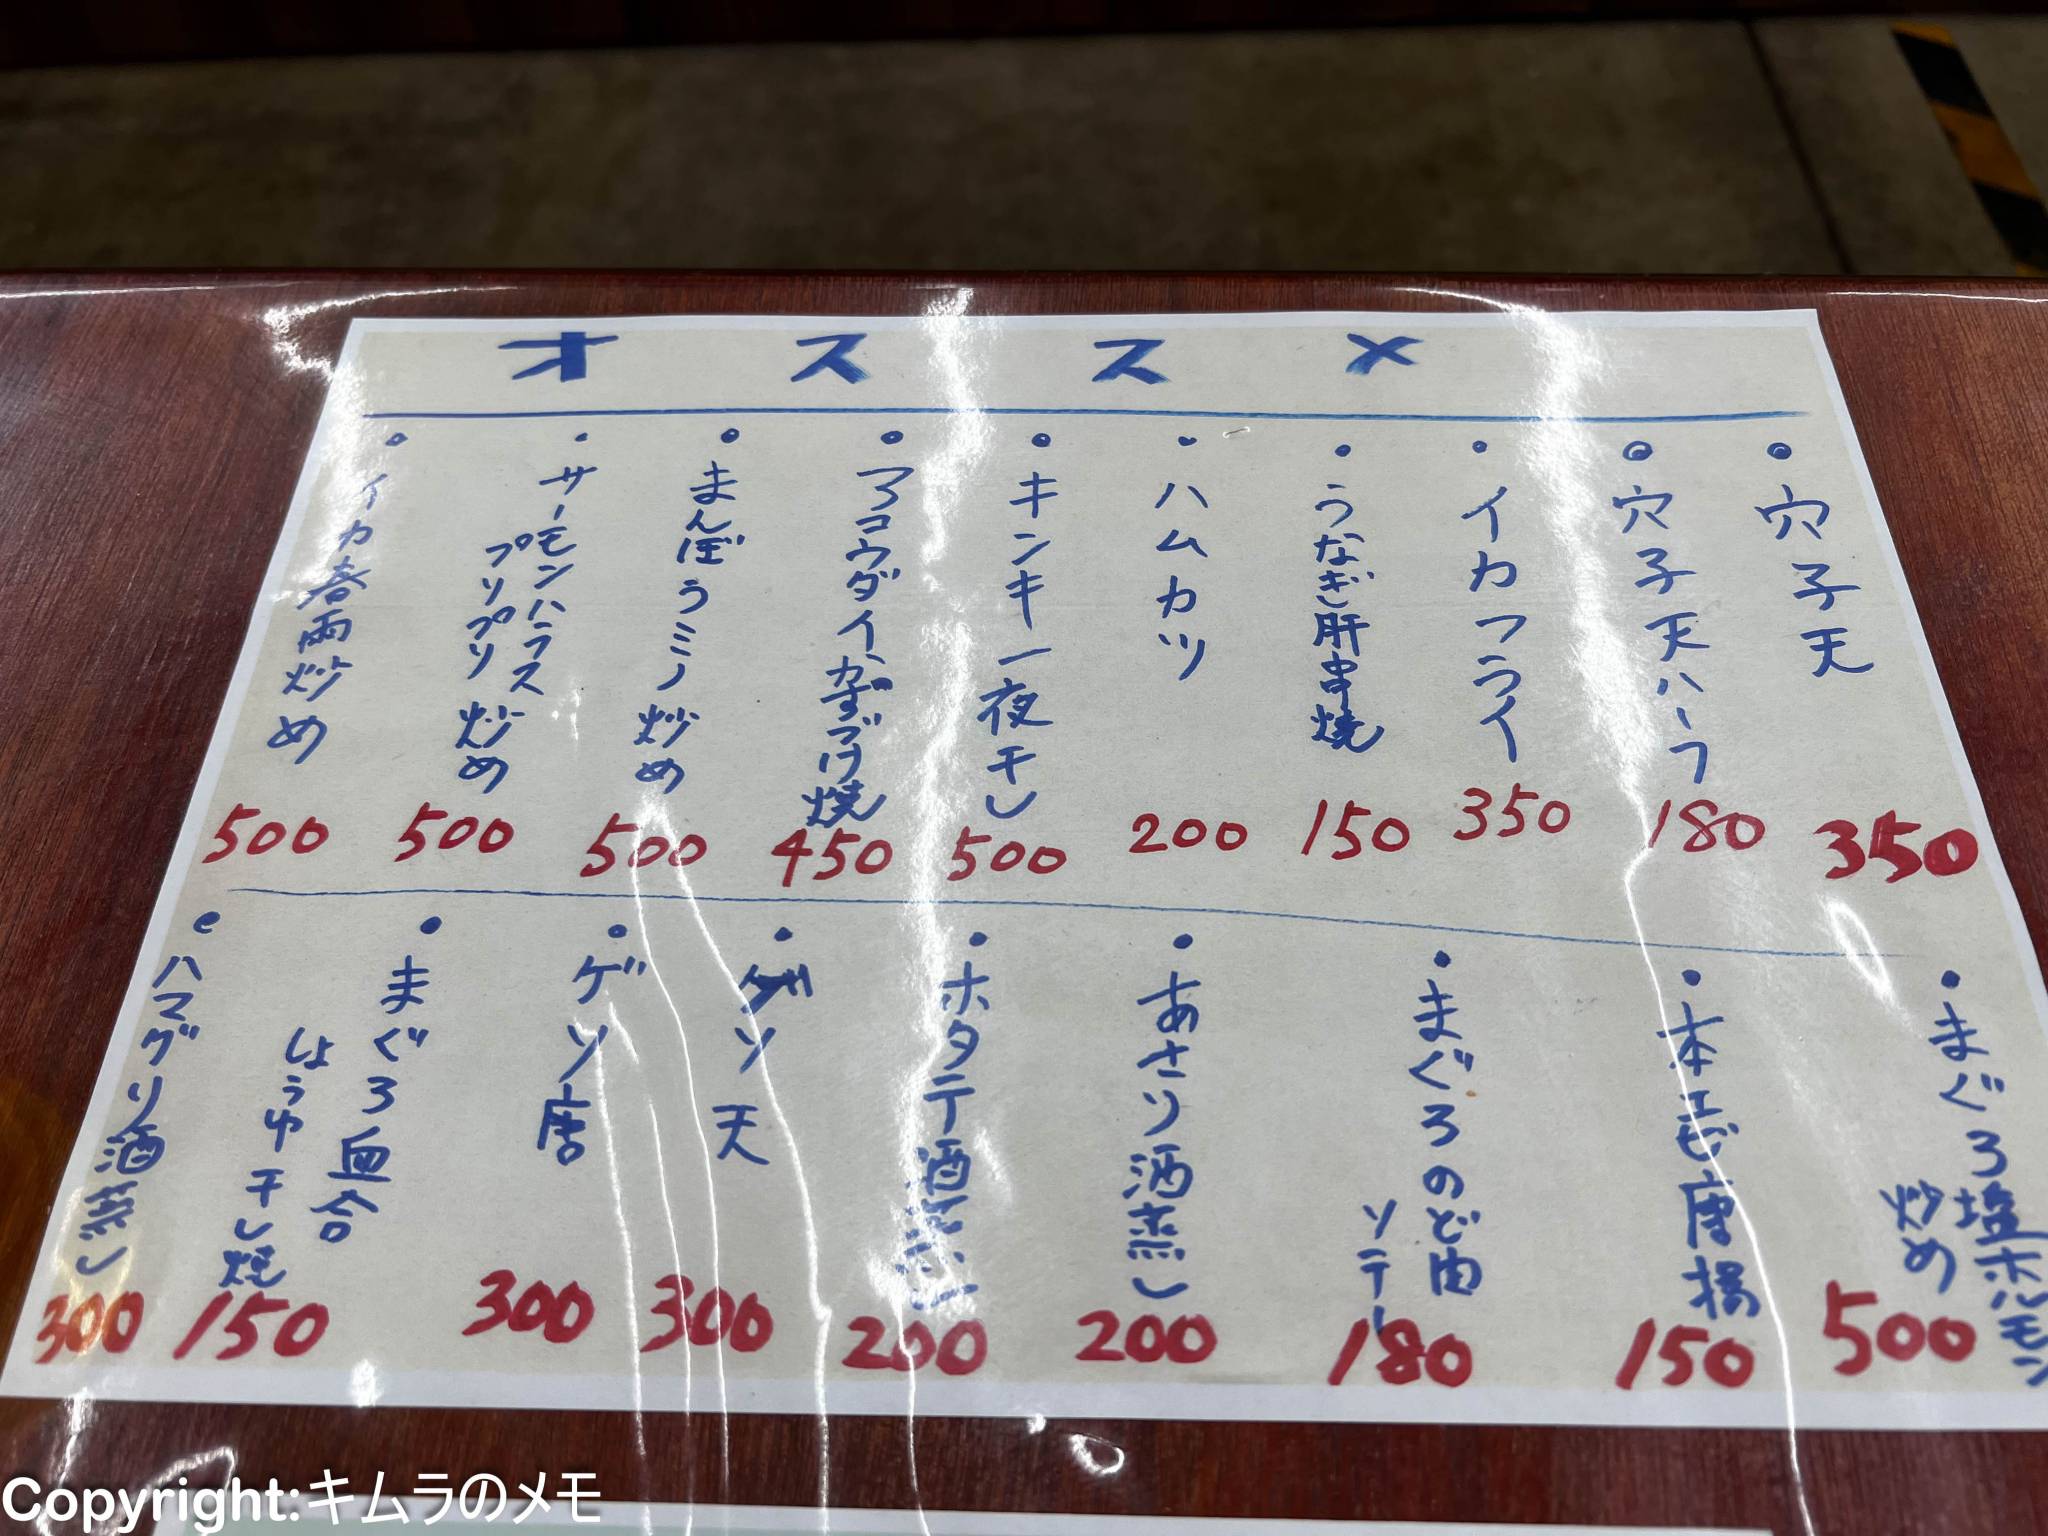 オススメ
・穴子天 350
・穴子天ハーフ 180
・イカフライ 350
・うなぎ肝串焼 150
・ハムカツ 200
・キンキ一夜干し 500
・アコウダイかずづけ焼 450
・まんぼうミノ炒め 500
・サーモンハラス
プリプリ炒め 500
・イカ春雨炒め 500
・まぐろ塩ホルモン
炒め 500
・本エビ唐揚 150
・まぐろのど肉
ソテー 180
・あさり酒蒸し 200
・ホタテ酒蒸し 200
・ゲソ天 300
・ゲソ唐 300
・まぐろ血合
しょうゆ干し焼 150
・ハマグリ酒蒸し 300
Copyright:キムラのメモ